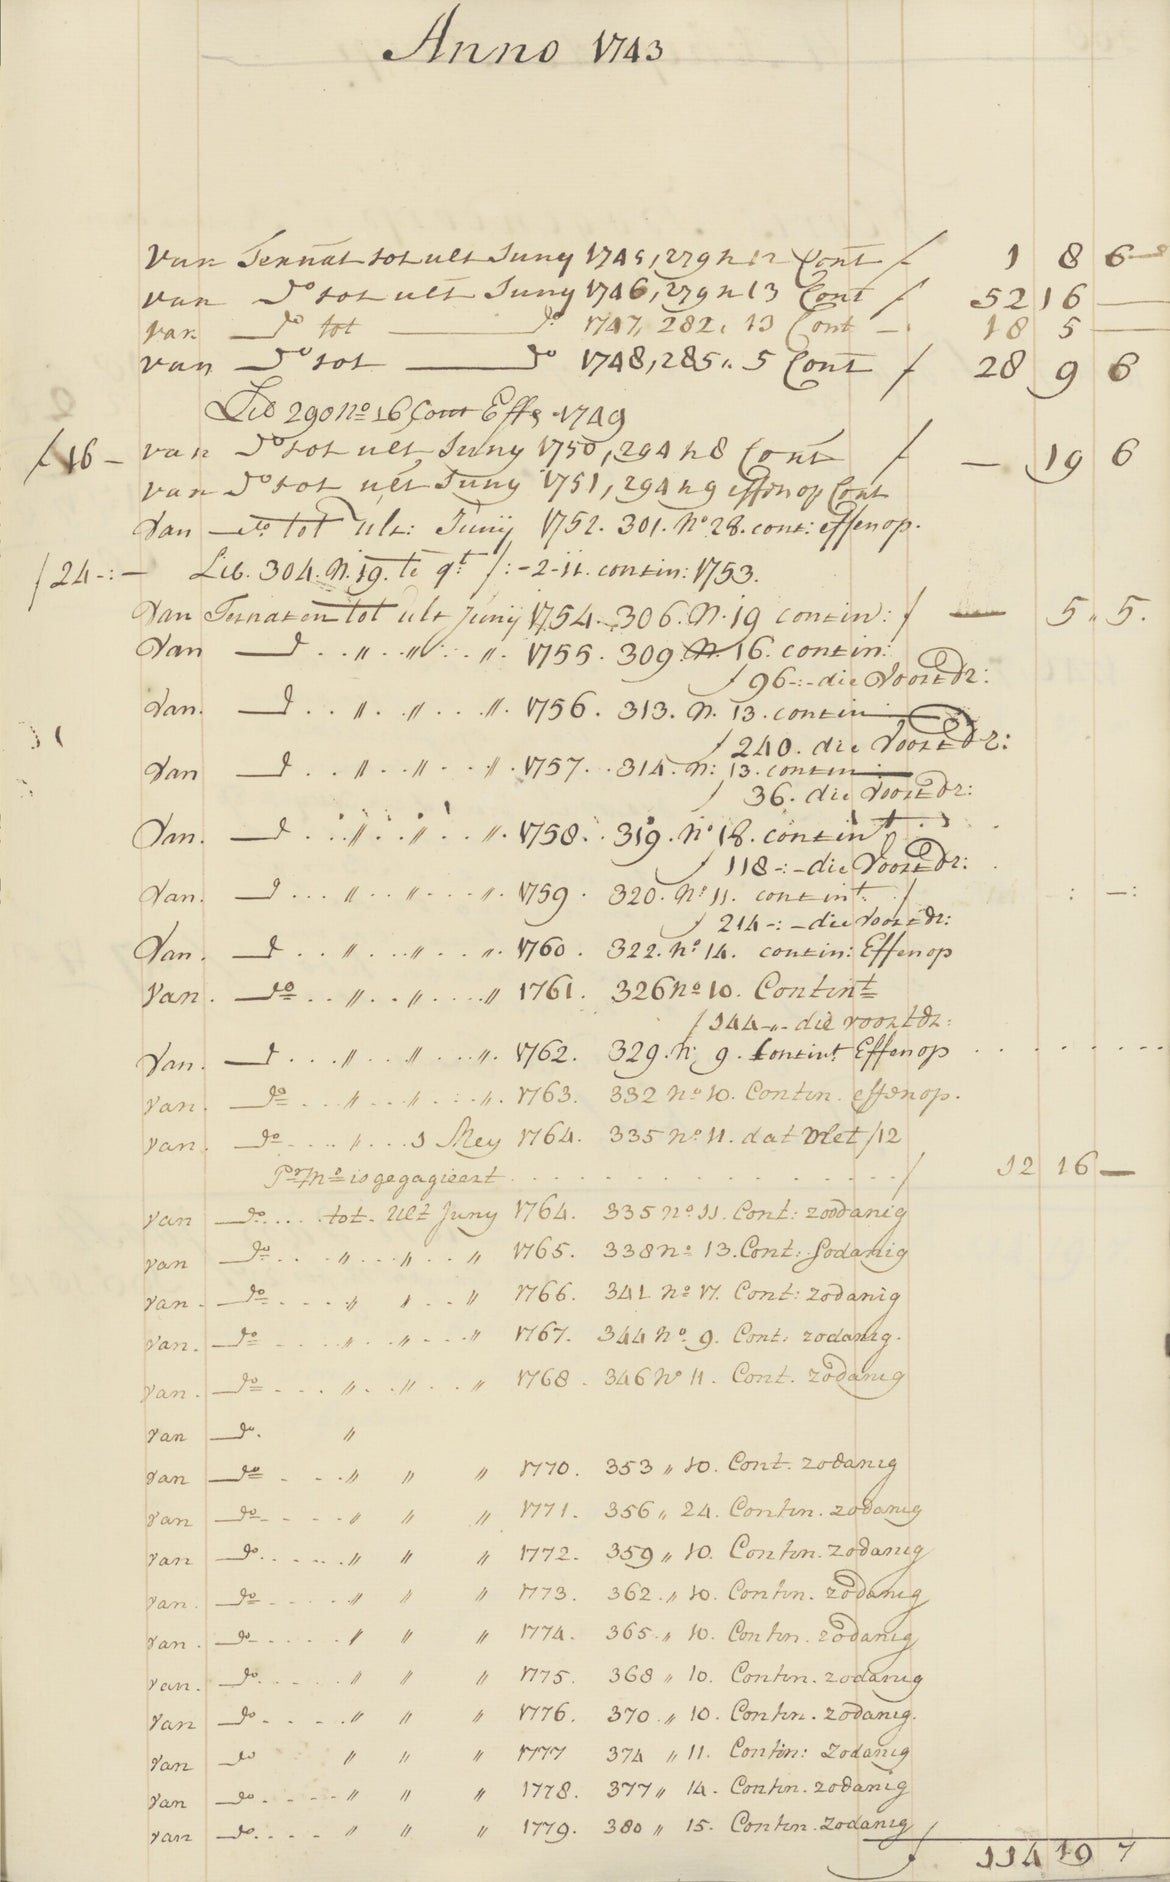 Anno 1743
van Ternat tot ult Juny 1745, 279 n 12 Cont f 1 8 6
van do tot ult Juny 1746, 279 n 13 Cont f 52 16 —
van do tot — do 1747, 282. 13 Cont — 18 5 —
van do tot — do 1748, 285 " 5 Cont f 28 9 6
Lib 290 No 16 Cont Effe 1749
f 16 — van do tot ult Juny 1750, 294 n 8 Cont f — 19 6
van do tot ult Juny 1751, 294 n 9 effen op Cont
Van — do tot ult: Junij 1752. 301. No 28. cont: effen op.
f 24 -:- Lib. 304. N. 19. te qt f: - 2 - 11. contin: 1753.
Van Ternaten tot ult Junij 1754. 306. N. 19 contin: f — 5 " 5.
Van — d . . " . " . . " . 1755. 309. N. 16. contin:
f 96 -:- die Voortdr:
Van. — d . . " . " . . " . 1756. 313. N. 13. contin
f 240. die Voortdr:
Van — d . . " . " . . " . 1757. . 314. N: 13. contin:
f 36. die Voortdr:
Van. — d . . " . . " . . " . 1758. . 319. No 18. contint
f 118 -:- die Voortdr:
Van. — d . . . " . . " . . . " . 1759. 320. No 11. contint. f : —:
f 214 -:- die Voortdr:
Van. — d . . " . . . " . . " . 1760. 322. No 14. contin: Effen op
Van. — do . . " . . " . . . " 1761. 326 No 10. Contint
f 144 - " - die voortdr:
Van. — d . . . " . . . " . . . " . 1762. 329. N. 9. Contint Effen op . . . . . . .
Van. — do . . " . . " . . . " . 1763. 332 no 10. Contin. effen op.
Van. — do . . . . " . . . 1 Mey 1764. 335 no 11. dat Met f 12
Pr Mo is gegagieert . . . . . . . . . . . f 12 16 —
van — do . . . . tot. Ult Juny 1764. 335 no 11. Cont: zoodanig
van — do . . . " . . " . . " 1765. 338 no 13. Cont: Sodanig
van. — do . . . . " . " . . " 1766. 341 no 17. Cont: zodanig
van. — do . . . . " . . " . . . " 1767. 344 no 9. Cont. zodanig.
van. — do . . . . " . . " . . " 1768. 346 No 11. Cont. zodanig
van — do. "
van — do . . . " " " 1770. 353 " 10. Cont. zodanig
van — do . . . . " " " 1771. 356 " 24. Contin. zodanig
van — do . . . . . " " " 1772. 359 " 10. Contin. zodanig
van. — do . . . . . " " " 1773. 362. " 10. Contin. zodanig
van. — do . . . . . " " " 1774. 365. " 10. Contin. zodanig
van. — do . . . . . " " " 1775. 368 " 10. Contin. zodanig
van — do . . . . " " " 1776. 370. " 10. Contin. zodanig.
van — do " " " 1777 374 " 11. Contin: Zodanig
van — do . . . . . " " " 1778. 377 " 14. Contin. zodanig
van — do . . . . " " " 1779. 380 " 15. Contin. zodanig
f 114 19 7